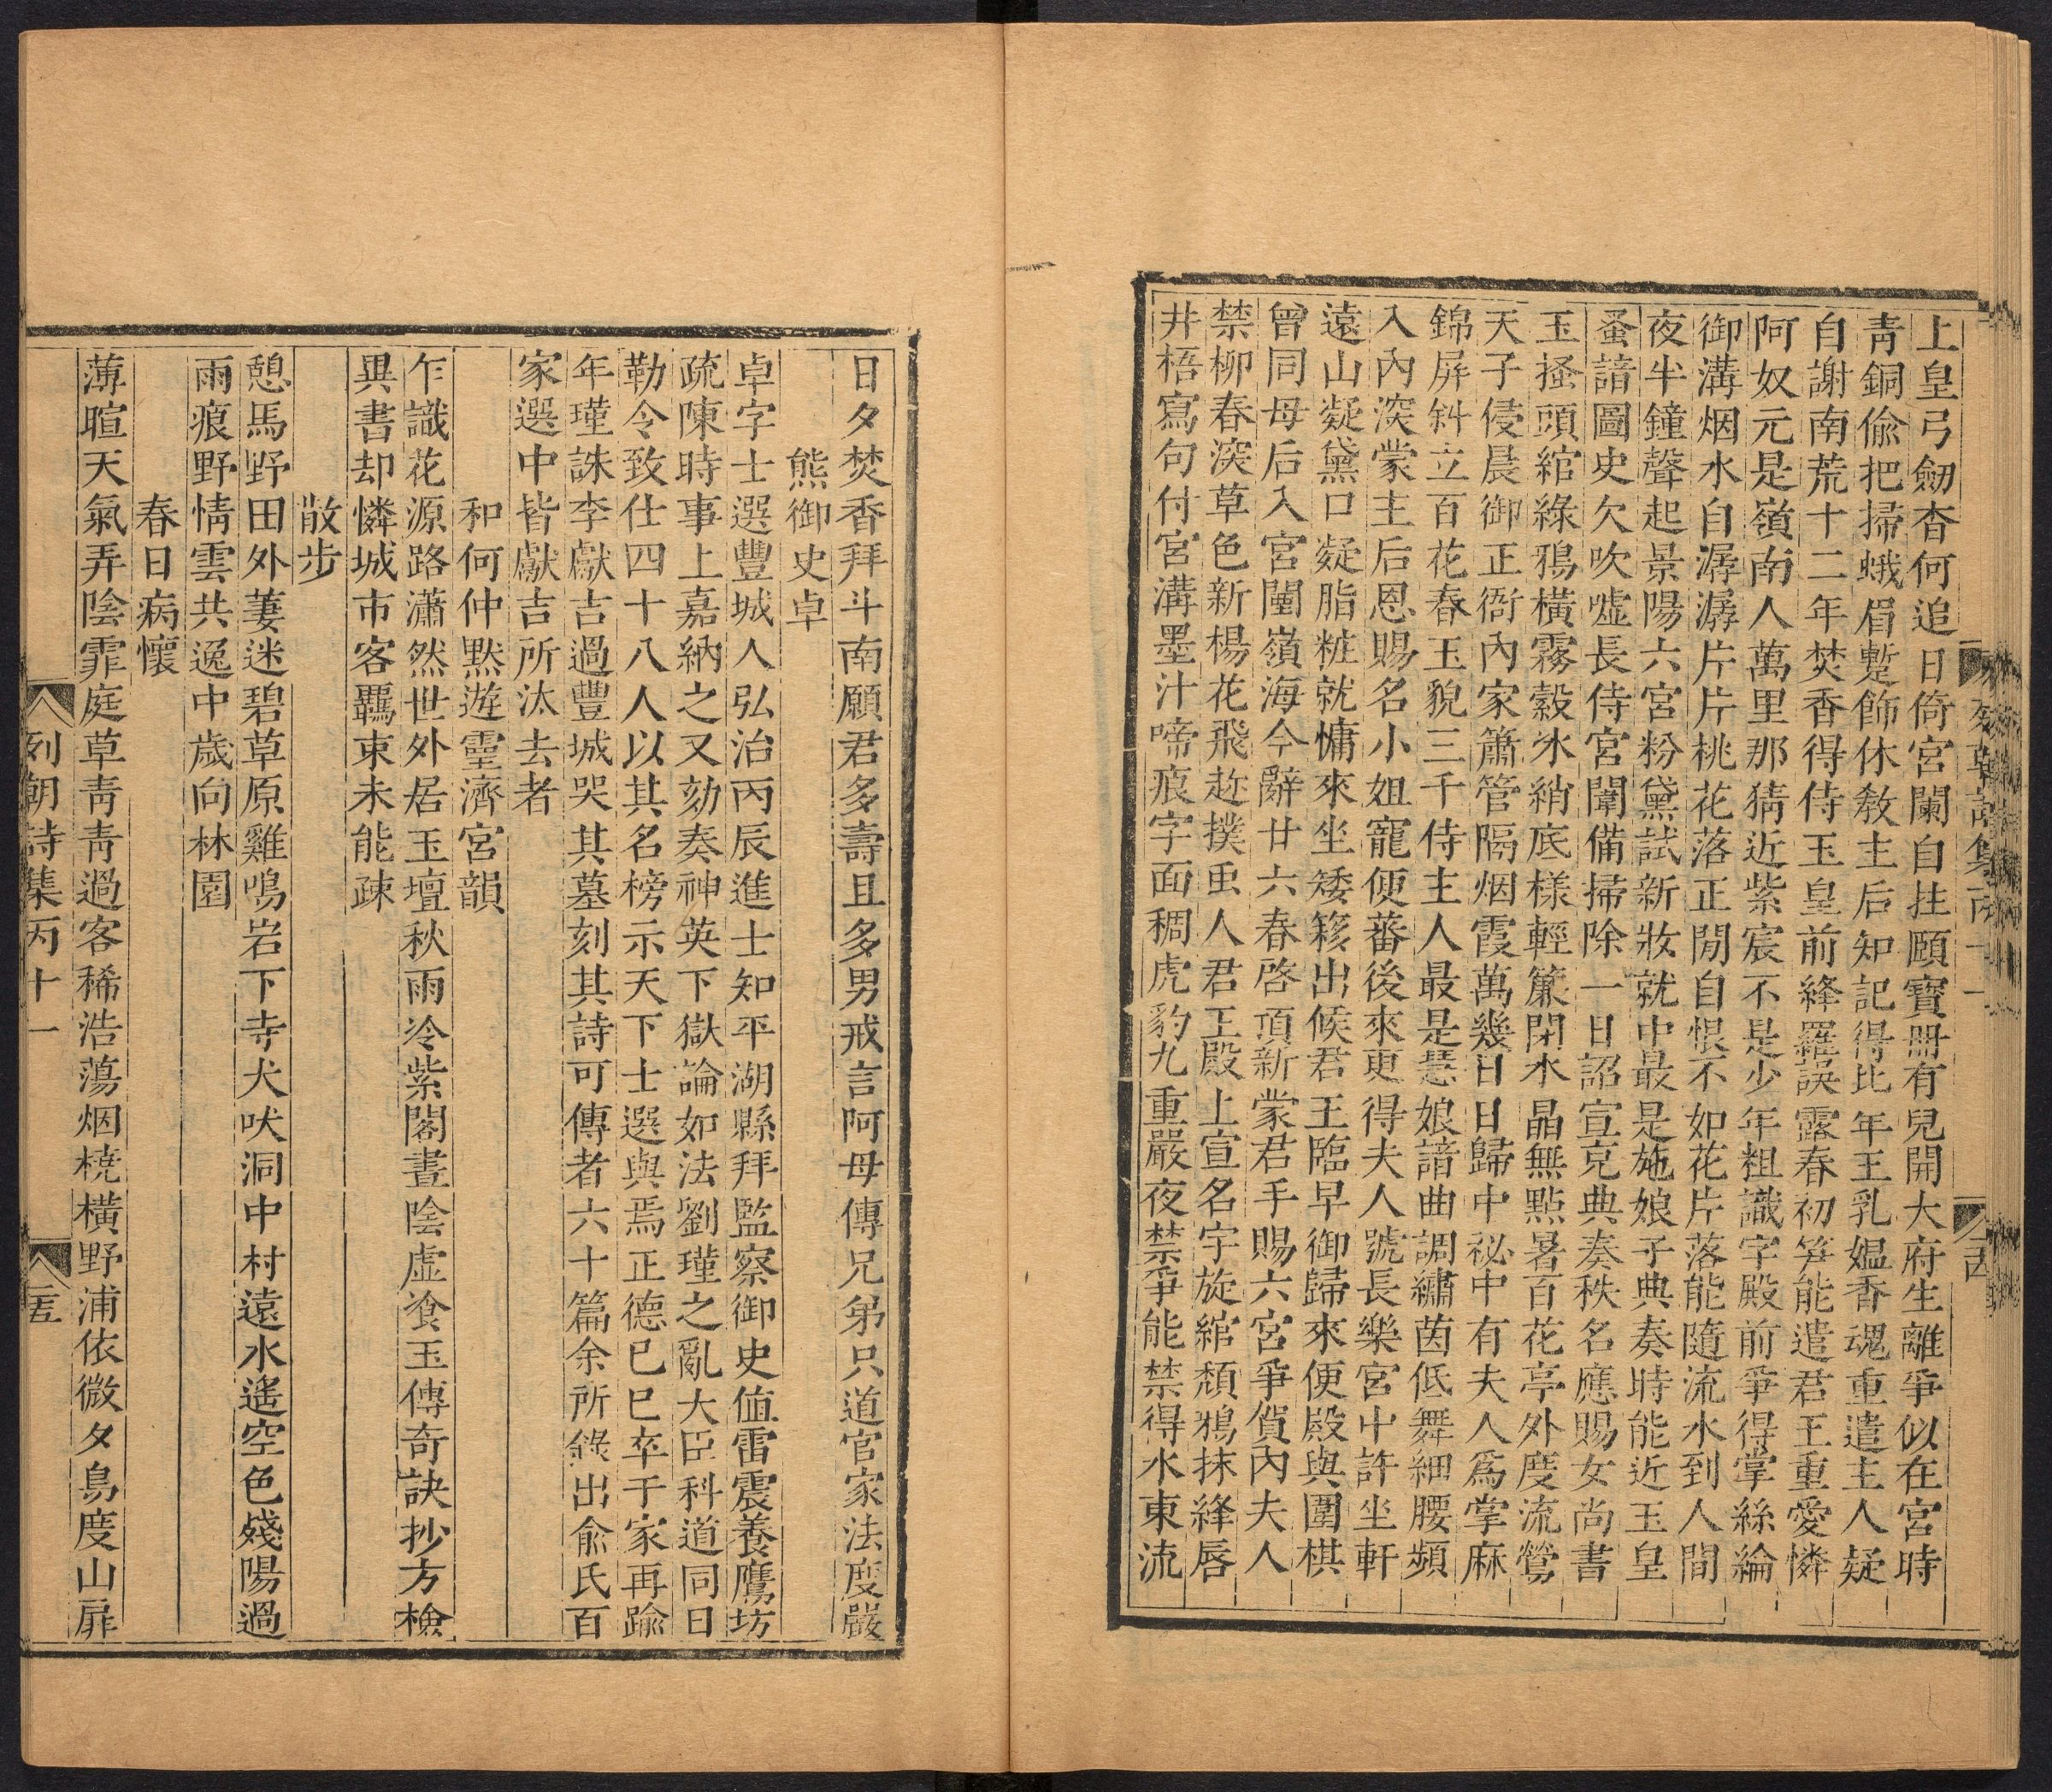 上皇弓劒杳何追日倚宮闌自拄頤寶冊有兒開大府生離爭似在宮時
青銅偸把掃蛾眉蹔飾休敎主后知記得比年王乳媼香魂重遣主人疑
自謝南荒十二年焚香得侍玉皇前絳羅誤露春初笋能遣君王重愛憐
阿奴元是嶺南人萬里那猜近紫宸不是少年粗識字殿前爭得掌絲綸
御溝烟水自潺潺片片桃花落正閒自恨不如花片落能隨流水到人間
夜半鐘聲起景陽六宮粉黛試新妝就中最是施娘子典奏時能近玉皇
蚤諳圖史欠吹嘘長侍宮闈備掃除一日詔宣克典奏秩名應賜女尚書
玉搔頭綰綠鴉橫霧縠氷綃底樣輕簾閉水晶無點暑百花亭外度流鶯
天子侵晨御正衙內家簫管隔烟霞萬幾日日歸中祕中有夫人爲掌麻
錦屏斜立百花春玉貌三千侍主人最是慧娘諳曲調繡茵低舞細腰頻
入內深蒙主后恩賜名小姐寵便蕃後來更得夫人號長樂宮中許坐軒
遠山凝黛口凝脂粧就慵來坐矮簃出候君王臨早御歸來便殿與圍棋
曾同母后入宮闈嶺海今辭廿六春啓頂新蒙君手賜六宮爭賀內夫人
禁柳春深草色新楊花飛趂撲虫人君王殿上宣名字旋綰頹鴉抹絳唇
井梧寫句付宮溝墨汁啼痕字面稠虎豹九重嚴夜禁爭能禁得水東流
日夕焚香拜斗南願君多壽且多男戒言阿母傳兄弟只道官家法度嚴
熊御史卓
卓字士選豐城人弘治丙辰進士知平湖縣拜監察御史値雷震養鷹坊
疏陳時事上嘉納之又劾奏神英下獄論如法劉瑾之亂大臣科道同日
勒令致仕四十八人以其名榜示天下士選與焉正德己巳卒于家再踰
年瑾誅李獻吉過豐城哭其墓刻其詩可傳者六十篇余所錄出俞氏百
家選中皆獻吉所汰去者
和何仲默遊靈濟宮韻
乍識花源路瀟然世外居玉壇秋雨冷紫閣晝陰虛飡玉傳奇訣抄方檢
異書却憐城市客羈束未能疎
散步
憩馬野田外萋迷碧草原雞鳴岩下寺犬吠洞中村遠水遙空色殘陽過
雨痕野情雲共逸中歲向林園
春日病懷
薄暄天氣弄陰霏庭草青青過客稀浩蕩烟橈橫野浦依微夕鳥度山扉
列朝詩集丙十一